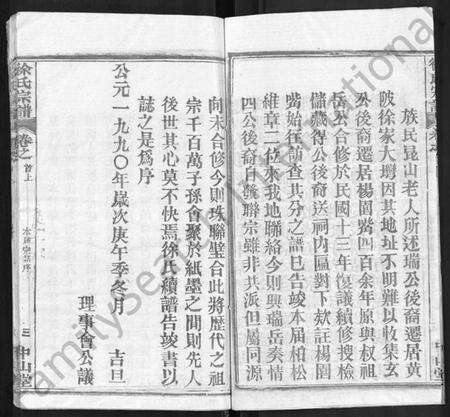 族民昆山老人所述瑞公後裔遷居黃
陂徐家大塆因其地址不明難以收集玄
公後裔遷居楊園嘴四百余年原與权祖
岳公合修於民國十三年復議續修搜檢
儲藏得公後裔送祠內區對下欵註楊園
嘴始往訪查其分之譜巳告竣本届柏松
維章二位來我地聯絡今則興瑞岳奏情
四公後裔自斃聯宗雖非共派但屬同源
向未合修今則珠聯璧合此將歷代之祖
宗千百萬子孫會聚於紙墨之間則先人
後世其心莫不快焉徐氏續譜告竣書以
誌之是為序
公元一九九〇年歲次庚午季冬月 吉旦
理事會公議
徐氏宗譜
卷之首上
三 中山堂
FamilySearch International